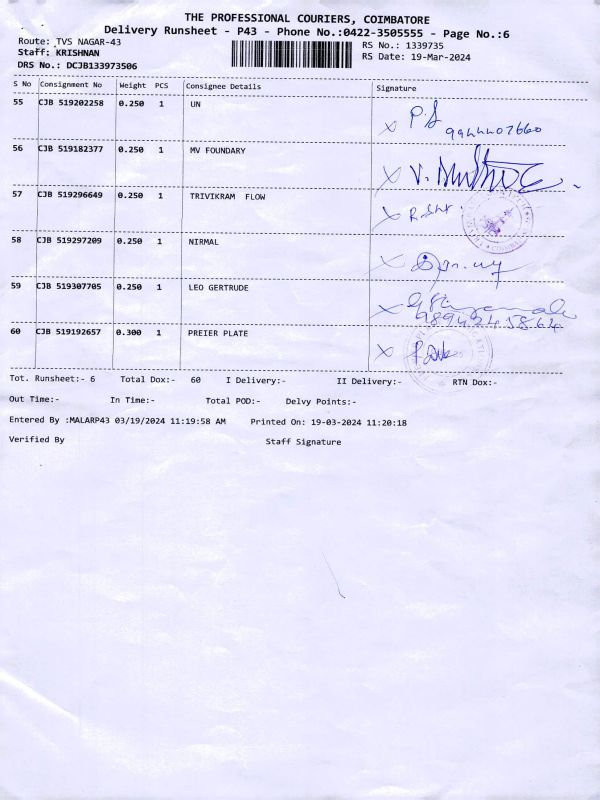 THE PROFESSIONAL COURIERS, COIMBATORE
Delivery Runsheet - P43 - Phone No.:0422-3505555 - Page No.:6
Route: TVS NAGAR-43
RS No.: 1339735
Staff: KRISHNAN
RS Date: 19-Mar-2024
DRS No.: DCJB133973506
S No Consignment No Weight PCS Consignee Details Signature
55 CJB 519202258 0.250 1 UN
56 CJB 519182377 0.250 1 MV FOUNDARY
57 CJB 519296649 0.250 1 TRIVIKRAM FLOW
58 CJB 519297209 0.250 1 NIRMAL
59 CJB 519307705 0.250 1 LEO GERTRUDE
60 CJB 519192657 0.300 1 PREIER PLATE
Tot. Runsheet:- 6 Total Dox:- 60 I Delivery:- II Delivery:- RTN Dox:-
Out Time:- In Time:- Total POD:- Delvy Points:-
Entered By :MALARP43 03/19/2024 11:19:58 AM Printed On: 19-03-2024 11:20:18
Verified By Staff Signature